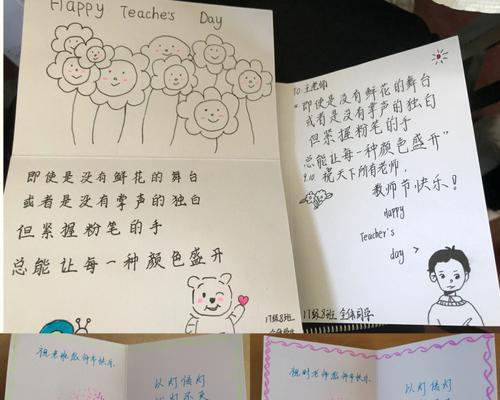 Happy Teache's Day
即使是没有鲜花的舞台
或者是没有掌声的独白
但紧握粉笔的手
总能让每一种颜色盛开
17级8班
TO:王老师
“即使是没有鲜花的舞台
或者是没有掌声的独白
但紧握粉笔的手
总能让每一种颜色盛开”
9.10 祝天下所有老师,
教师节快乐!
Happy
Teacher's
day >
17级8班 全体同学
以灯传灯
以灯传灯